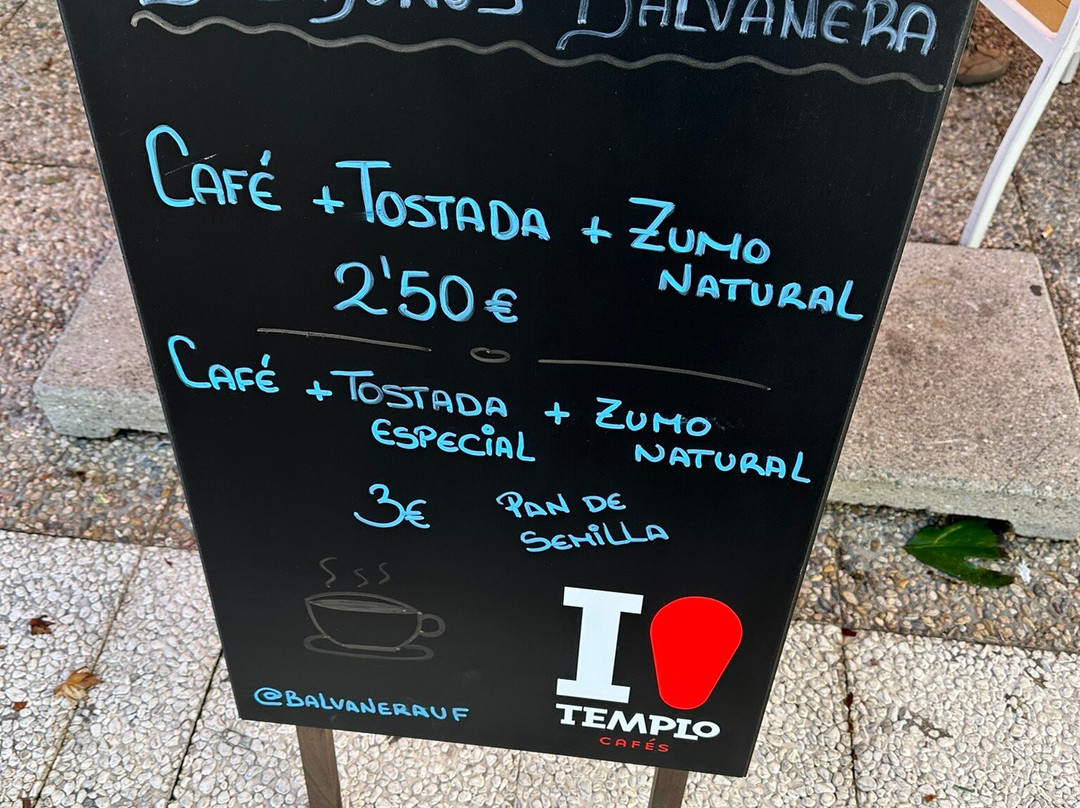 BALVANERA
CAFÉ + TOSTADA + ZUMO
NATURAL
2'50€
CAFÉ + TOSTADA + ZUMO
ESPECIAL NATURAL
3€ PAN DE
SEMILLA
@BALVANERAUF
I
TEMPLO
CAFÉS